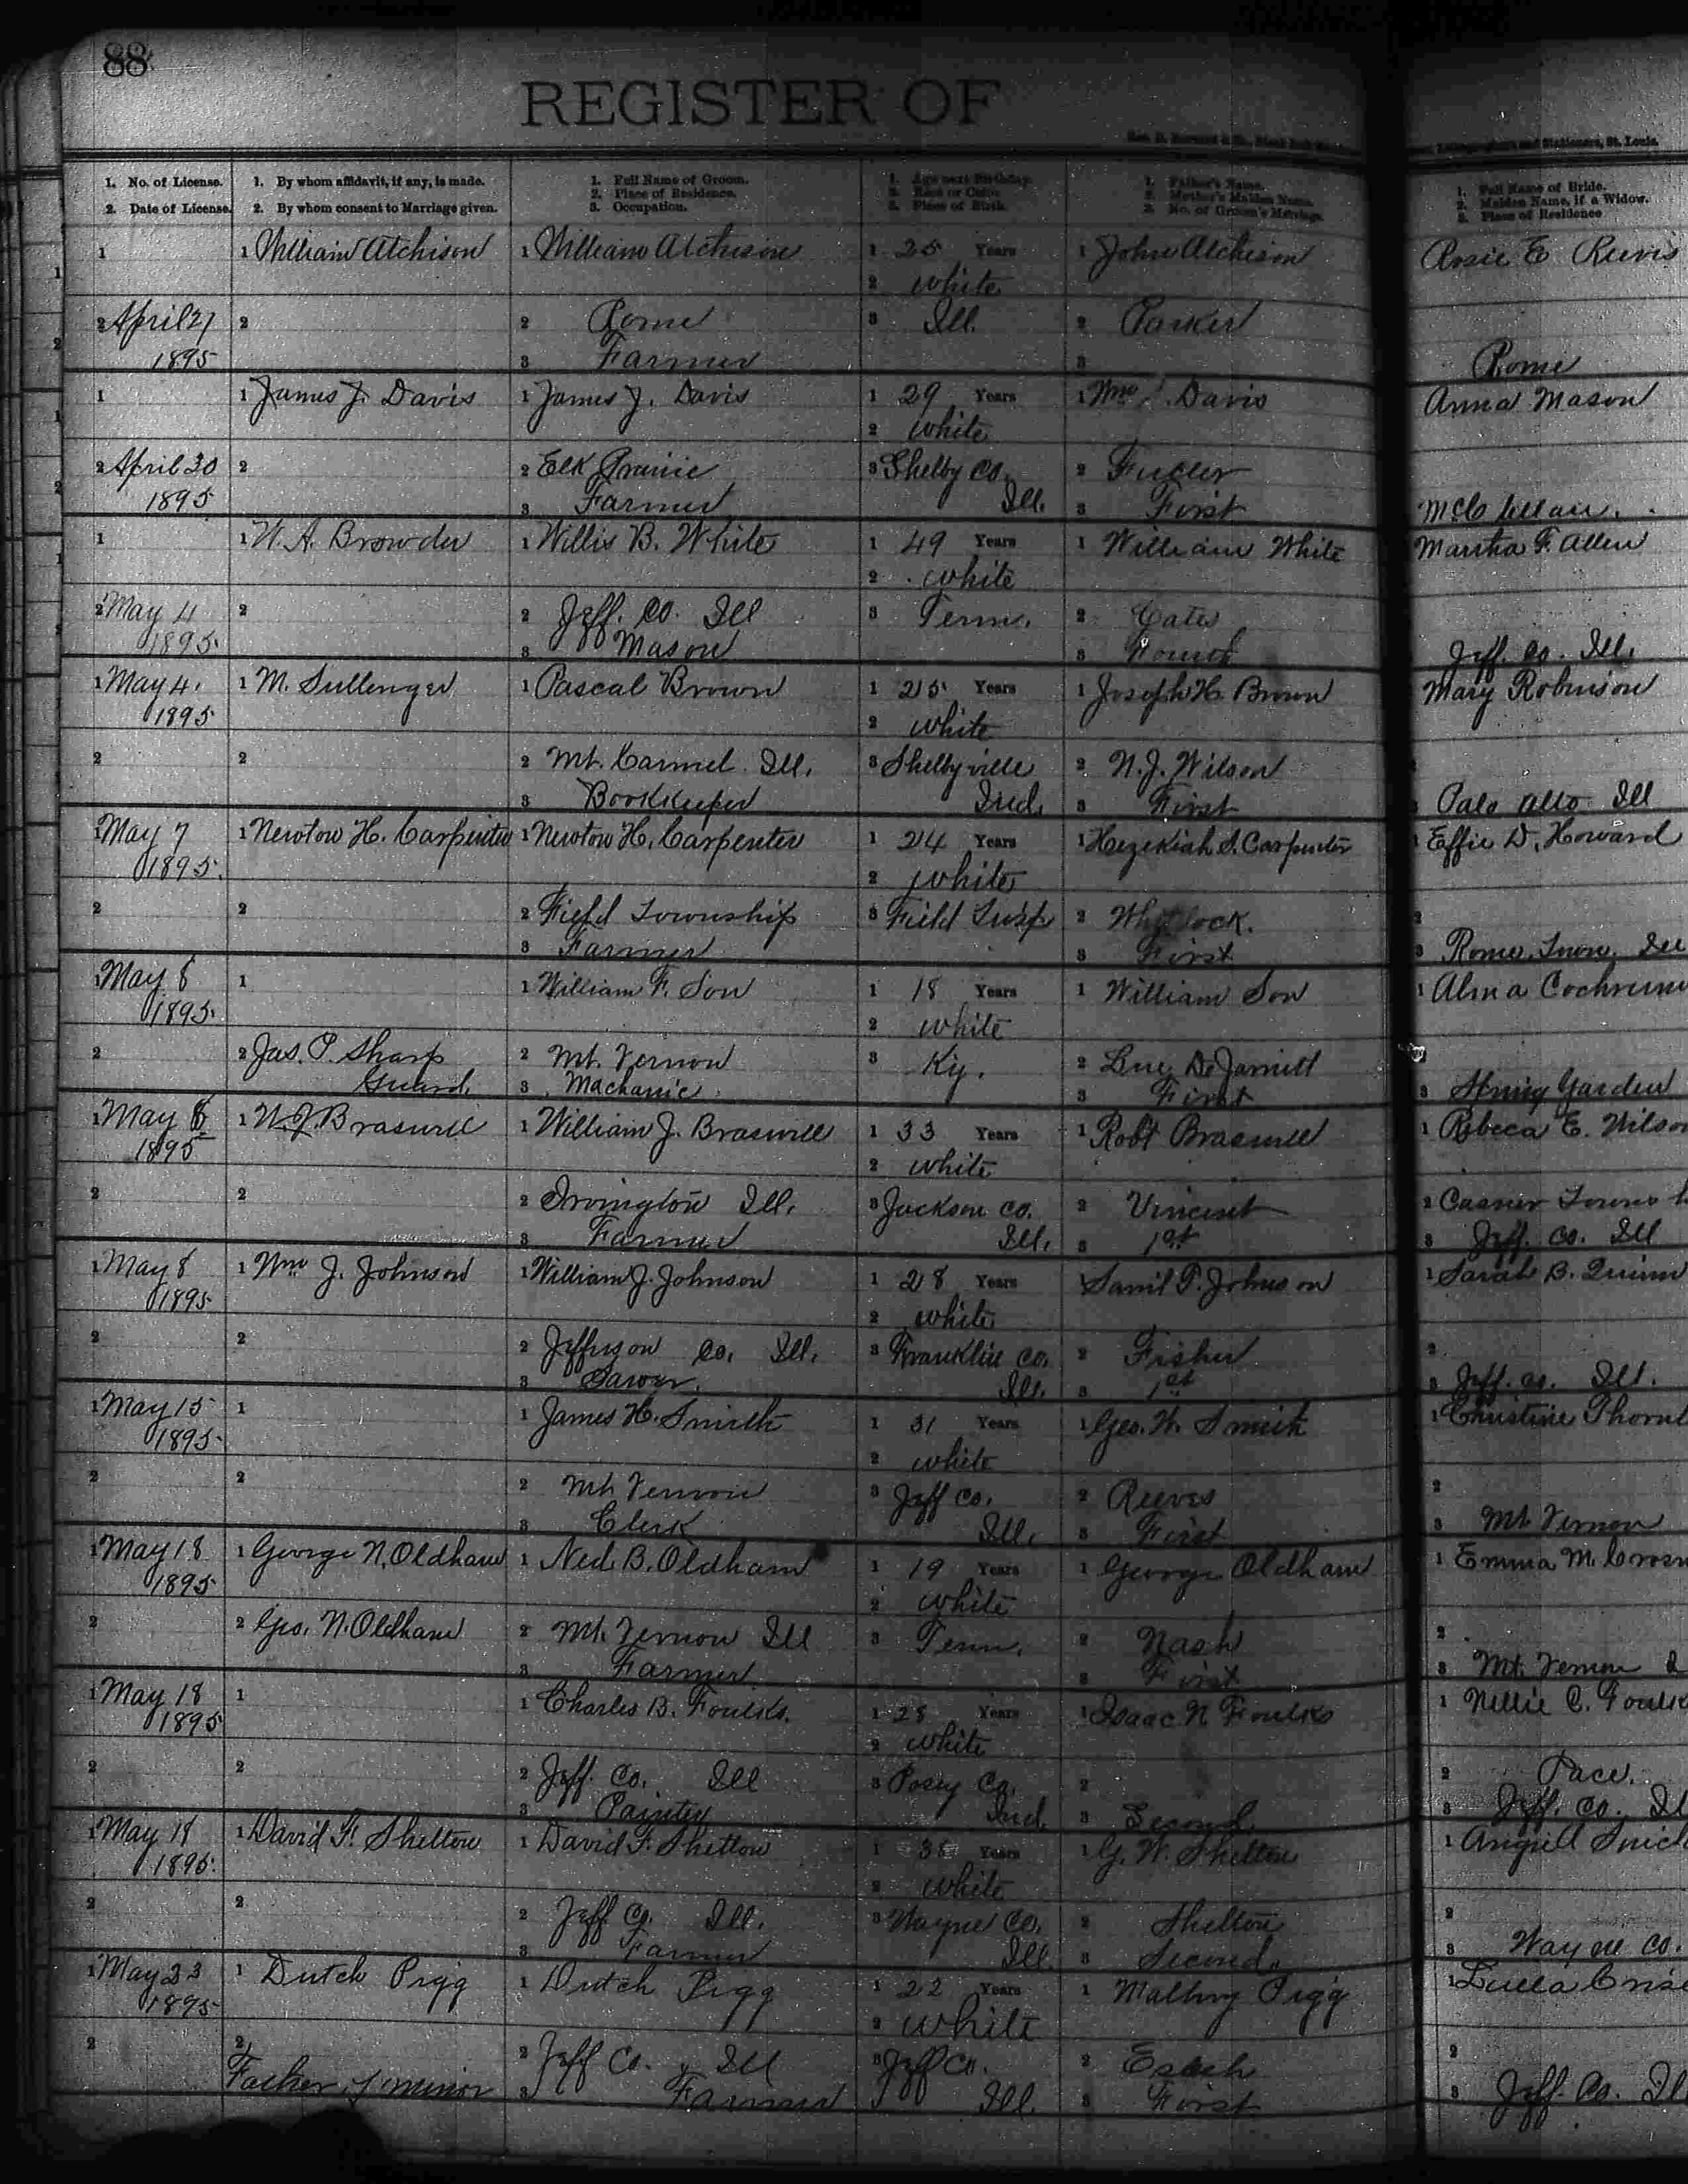 88
REGISTER OF
1. No. of License. 1. By whom affidavit, if any, is made. 1. Full Name of Groom. 1. Age next Birthday. 1. Father's Name. 1. Full Name of Bride.
2. Date of License. 2. By whom consent to Marriage given. 2. Place of Residence. 2. Race or Color. 2. Mother's Maiden Name. 2. Maiden Name, if a Widow.
3. Occupation. 3. Place of Birth. 3. No. of Groom's Marriage. 3. Place of Residence
1 1 William Atchison 1 William Atchison 1 25 Years 1 John Atchison Rosie E Reevis
2 white
2 April 27 2 2 Rome 3 Ill. 2 Parker
1895 3 Farmer 3 Rome
1 1 James J. Davis 1 James J. Davis 1 29 Years 1 Wm Davis Anna Mason
2 white
2 April 30 2 2 Elk Prairie 3 Shelby Co. 2 Fuller
1895 3 Farmer Ill. 3 First McClellan.
1 1 W. A. Browder 1 Willis B. White 1 49 Years 1 William White Martha F. Allen
2 white
2 May 4 2 2 Jeff. Co. Ill 3 Tenn. 2 Cates
1895. 3 Mason 3 Fourth Jeff. Co. Ill.
1 May 4. 1 M. Sullenger 1 Pascal Brown 1 25 Years 1 Joseph H. Brown Mary Robinson
1895 2 white
2 2 2 Mt. Carmel Ill. 3 Shelbyville 2 N. J. Wilson
3 Bookkeeper Ind. 3 First Palo Alto Ill
1 May 7 1 Newton H. Carpenter 1 Newton H. Carpenter 1 24 Years 1 Hezekiah S. Carpenter 1 Effie D. Howard
1895. 2 white
2 2 2 Field Township 3 Field Twsp 2 Whitlock. 2
3 Farmer 3 First 3 Rome, Ill
1 May 8 1 1 William F. Son 1 18 Years 1 William Son 1 Alma Cochrum
1895. 2 white
2 2 Jas. P. Sharp 2 Mt. Vernon 3 Ky. 2
Guard. 3 Machanic 3 First 3 Garden
1 May 8 1 W. J. Braswell 1 William J. Braswell 1 33 Years 1 Robt Braswell 1 Rebeca E. Wilson
1895 2 white
2 2 2 Irvington Ill. 3 Jackson Co. 2 Vincent 2 Casner
3 Farmer Ill. 3 1st 3 Jeff. Co. Ill
1 May 8 1 Wm J. Johnson 1 William J. Johnson 1 28 Years 1 Saml P. Johnson 1 Sarah B. Quinn
1895 2 white
2 2 2 Jefferson Co. Ill. 3 Franklin Co. 2 Fisher 2
3 Ill. 3 1st 3 Jeff. Co. Ill.
1 May 15 1 1 James H. Smith 1 31 Years 1 Geo. W. Smith 1 Christine Thornt
1895. 2 white
2 2 2 Mt. Vernon 3 Jeff Co. 2 Reeves 2
3 Clerk Ill. 3 First 3 Mt Vernon
1 May 18 1 George N. Oldham 1 Ned B. Oldham 1 19 Years 1 George Oldham 1 Emma M. Crosn
1895 2 white
2 2 Geo. N. Oldham 2 Mt. Vernon Ill 3 Tenn. 2 Nash 2
3 Farmer 3 First 3 Mt. Vernon
1 May 18 1 1 Charles B. Foulks. 1 28 Years 1 Isaac N Foulks 1 Nellie C. Foulk
1895 2 white
2 2 2 Jeff. Co. Ill 3 Posey Co. 2 2 Pace.
3 Painter Ind. 3 Second 3 Jeff. Co. Il
1 May 18 1 David F. Shelton 1 David F. Shelton 1 35 Years 1 G. W. Shelton 1
1895. 2 white
2 2 2 Jeff Co. Ill. 3 Wayne Co. 2 Shelton 2
3 Farmer Ill. 3 Second 3 Wayne Co.
1 May 23 1 Dutch Pigg 1 Dutch Pigg 1 22 Years 1 Pigg 1 Luella
1895 2 white
2 2 2 Jeff Co. Ill 3 Jeff Co. 2 2
Father of minor 3 Farmer Ill. 3 First 3 Jeff. Co. Il